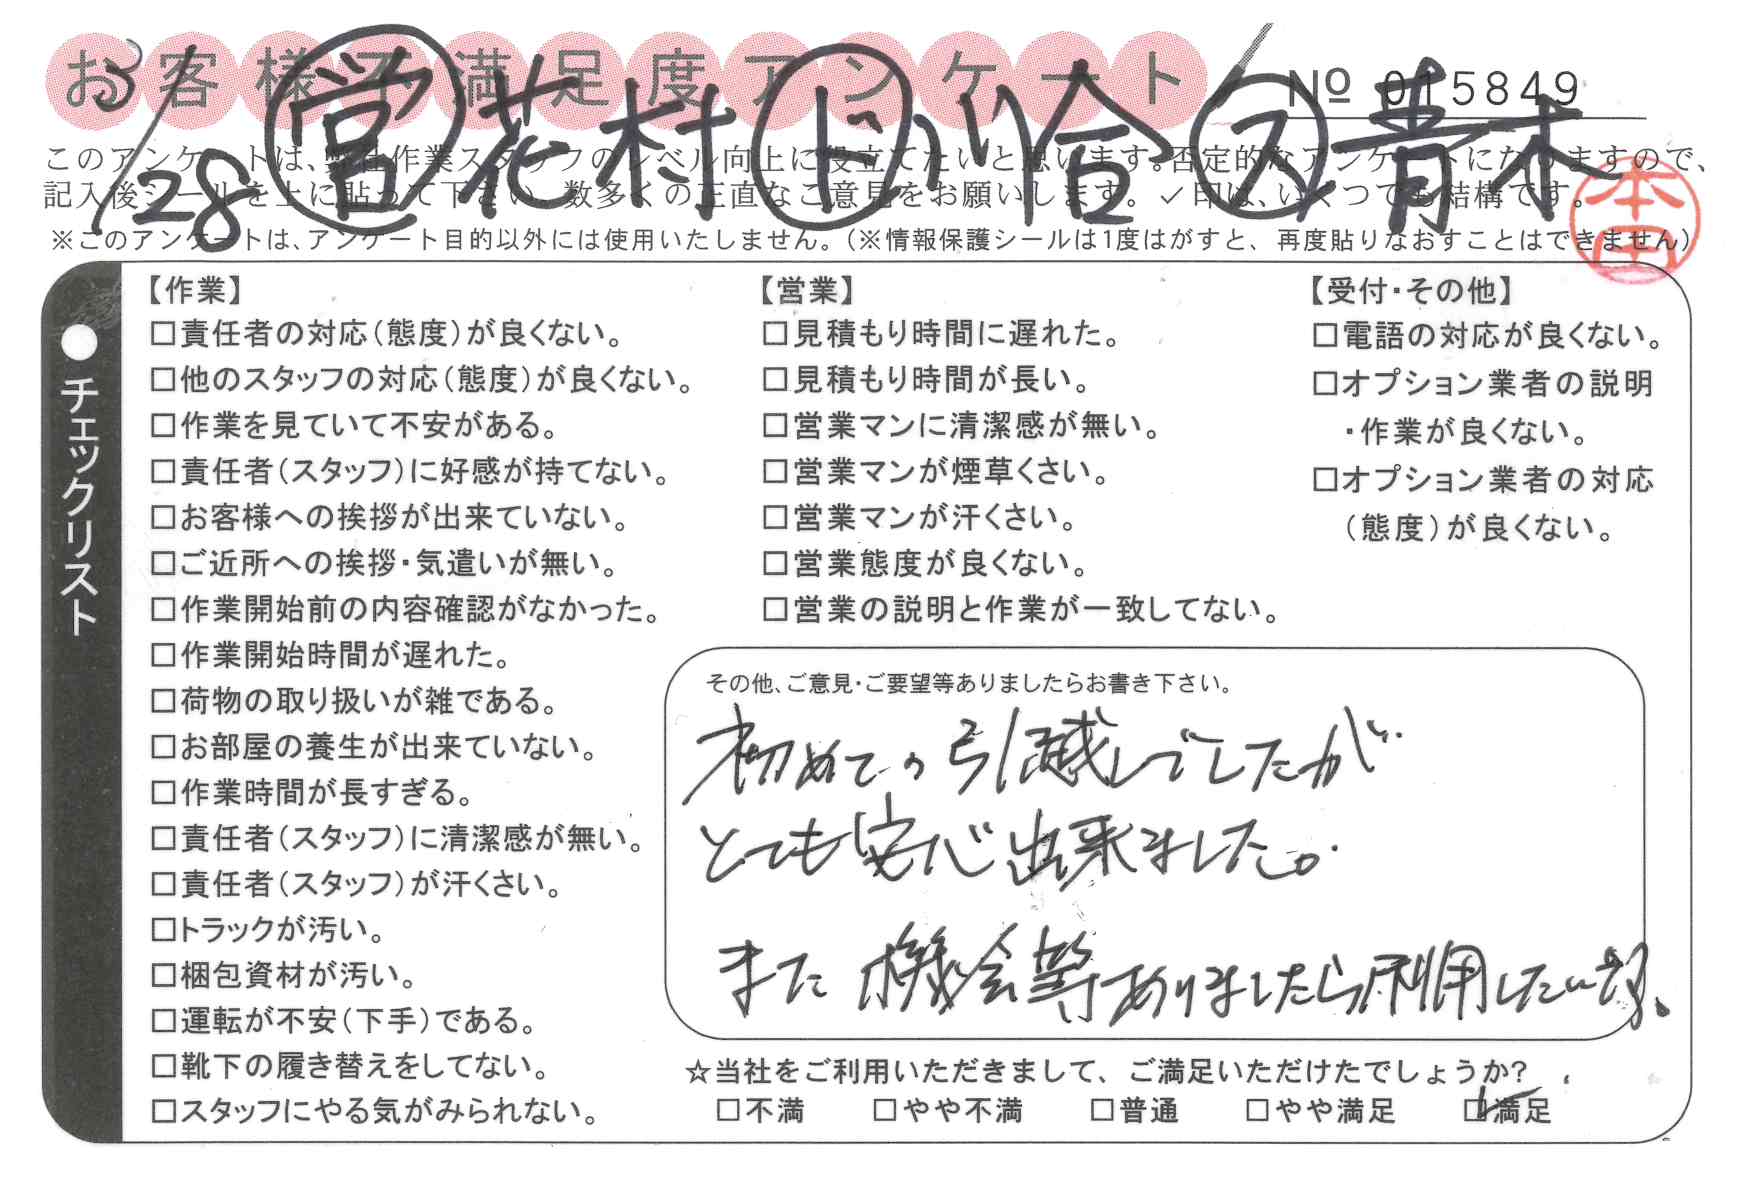 お客様不満足度アンケート
№ 015849
3/28 営 花村 ト 川合 ス 青木
このアンケートは、弊社作業スタッフのレベル向上に役立てたいと思います。否定的なアンケートになりますので、
記入後シールを上に貼って下さい。数多くの正直なご意見をお願いします。✓印は、いくつでも結構です。
※このアンケートは、アンケート目的以外には使用いたしません。(※情報保護シールは1度はがすと、再度貼りなおすことはできません)
本田
●チェックリスト
【作業】
□責任者の対応(態度)が良くない。
□他のスタッフの対応(態度)が良くない。
□作業を見ていて不安がある。
□責任者(スタッフ)に好感が持てない。
□お客様への挨拶が出来ていない。
□ご近所への挨拶・気遣いが無い。
□作業開始前の内容確認がなかった。
□作業開始時間が遅れた。
□荷物の取り扱いが雑である。
□お部屋の養生が出来ていない。
□作業時間が長すぎる。
□責任者(スタッフ)に清潔感が無い。
□責任者(スタッフ)が汗くさい。
□トラックが汚い。
□梱包資材が汚い。
□運転が不安(下手)である。
□靴下の履き替えをしてない。
□スタッフにやる気がみられない。
【営業】
□見積もり時間に遅れた。
□見積もり時間が長い。
□営業マンに清潔感が無い。
□営業マンが煙草くさい。
□営業マンが汗くさい。
□営業態度が良くない。
□営業の説明と作業が一致してない。
【受付・その他】
□電語の対応が良くない。
□オプション業者の説明
・作業が良くない。
□オプション業者の対応
(態度)が良くない。
その他、ご意見・ご要望等ありましたらお書き下さい。
初めての引越しでしたが
とても安心出来ました。
また機会等ありましたら利用したいです。
☆当社をご利用いただきまして、ご満足いただけたでしょうか?
□不満 □やや不満 □普通 □やや満足 ☑満足